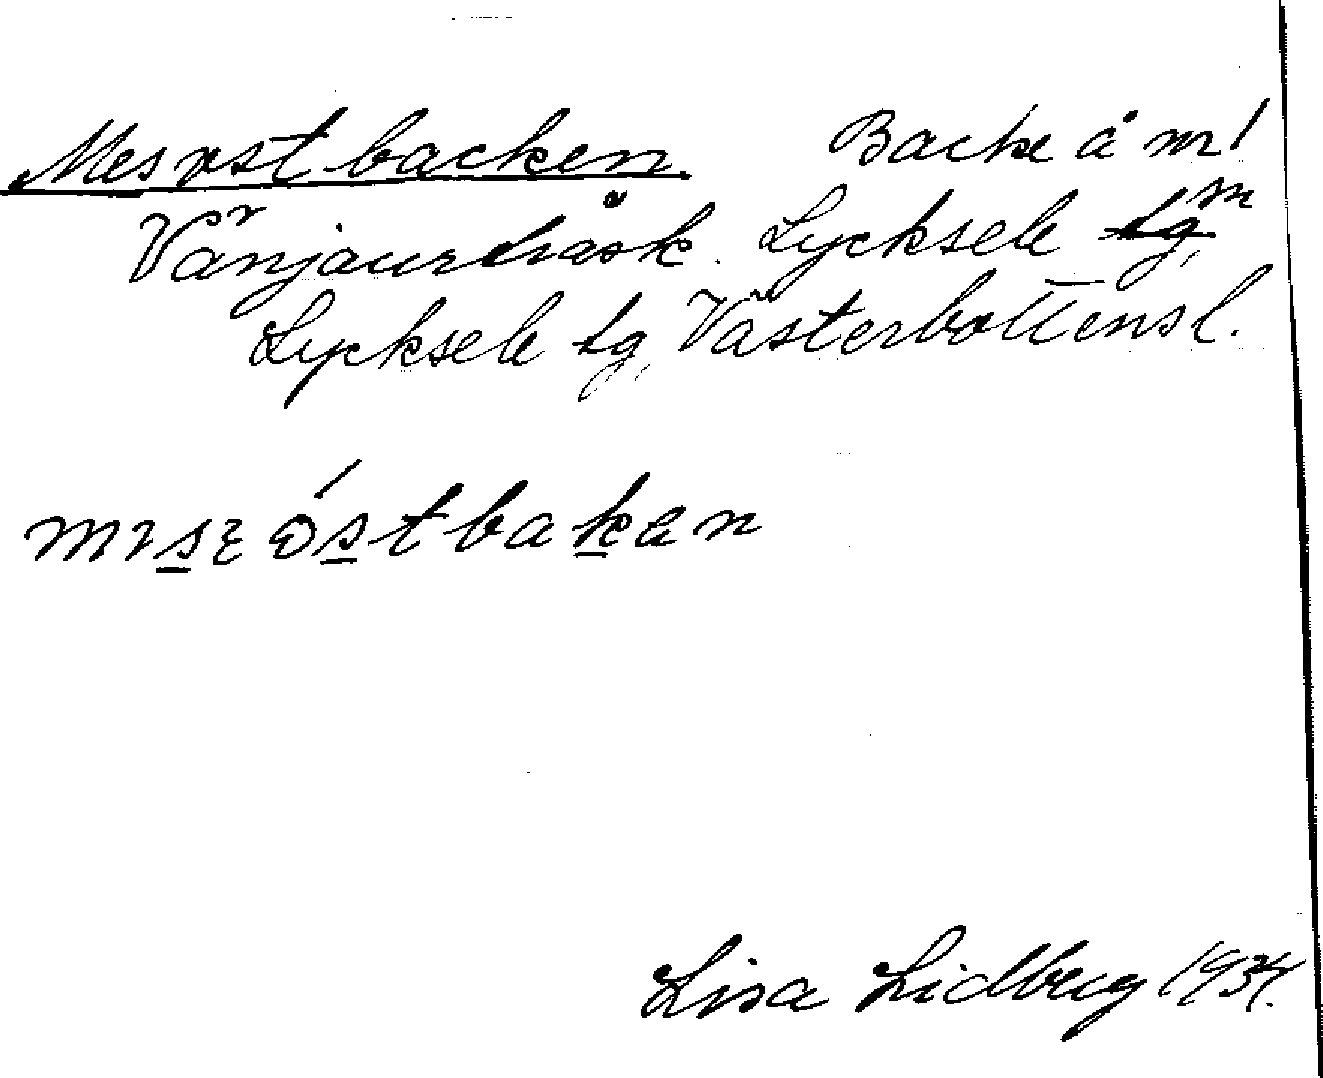 Mesostbacken. Backe å m/
Vänjaurträsk. Lycksele tg, m
Lycksele tg, Västerbottensl.
Lisa Lidberg 1934.